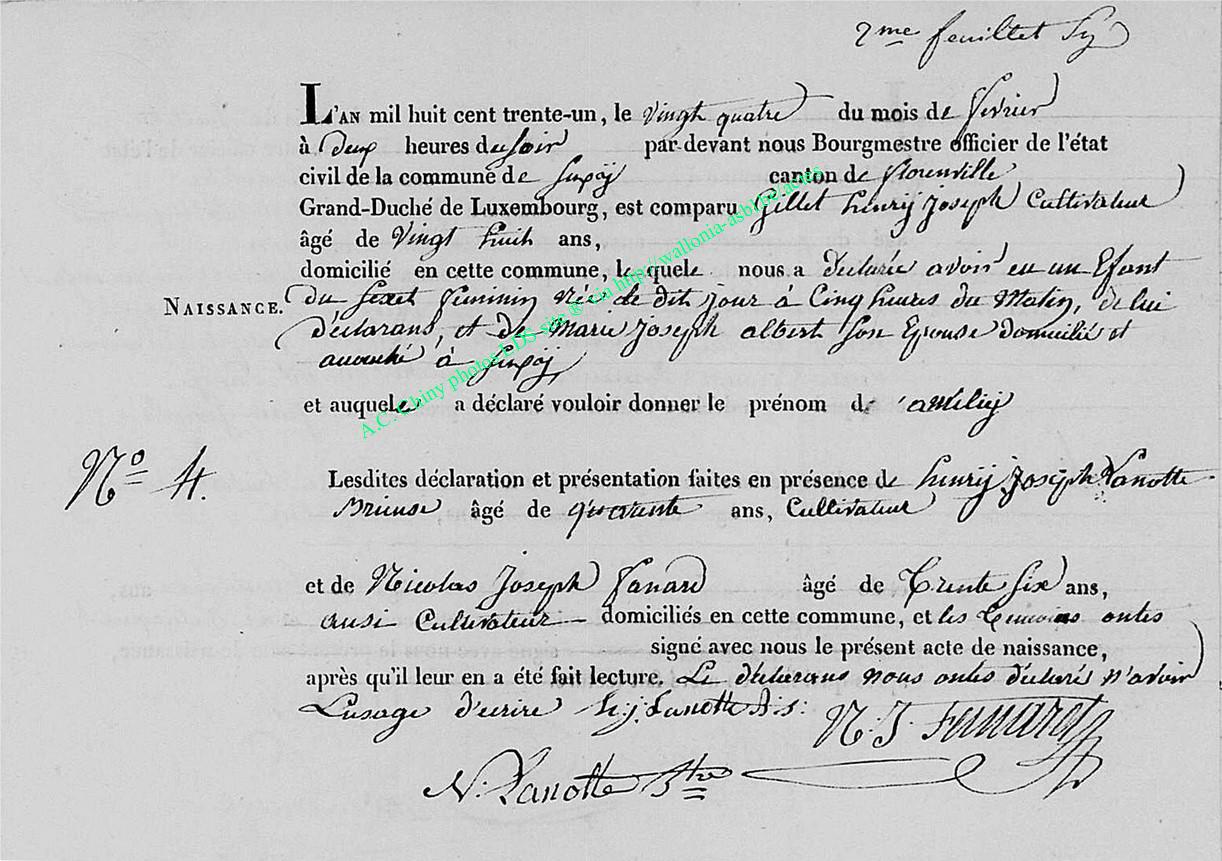 2me feuillet
L'AN mil huit cent trente-un, le Vingt quatre du mois de fevrier
à Deux heures du soir par-devant nous Bourgmestre officier de l'état
civil de la commune de Suxÿ canton de florenville
Grand-Duché de Luxembourg, est comparu Gillet henrij joseph Cultivateur
âgé de Vingt huit ans,
domicilié en cette commune, le quele nous a declarée avoir eu un Efant
NAISSANCE. du sexet feminin née de dit jour à Cinq heures du Matin, de lui
declarans, et de Marie joseph albert son Epouse domicilié et
accouché à Suxÿ
et auquele a déclaré vouloir donner le prénom de amelij
No 4. Lesdites déclaration et présentation faites en présence de henrij Joseph Lanotte
âgé de quarante ans, Cultivateur
et de Nicolas Joseph fanard âgé de Trente six ans,
ausi Cultivateur domiciliés en cette commune, et les temoins ontes
signé avec nous le présent acte de naissance,
après qu'il leur en a été fait lecture. Le declarans nous ontes declaré n'avoir
Lusage d'ecrire h. j. Lanotte
N. J. Fanard
N. Lanotte
A.C. Chiny photos EDS site ® via http://wallonia-asbl.be/actes